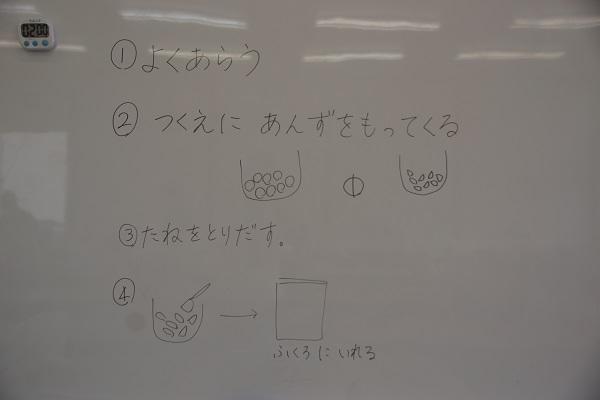 ① よくあらう
② つくえに あんずをもってくる
③ たねをとりだす。
④
ふくろに いれる